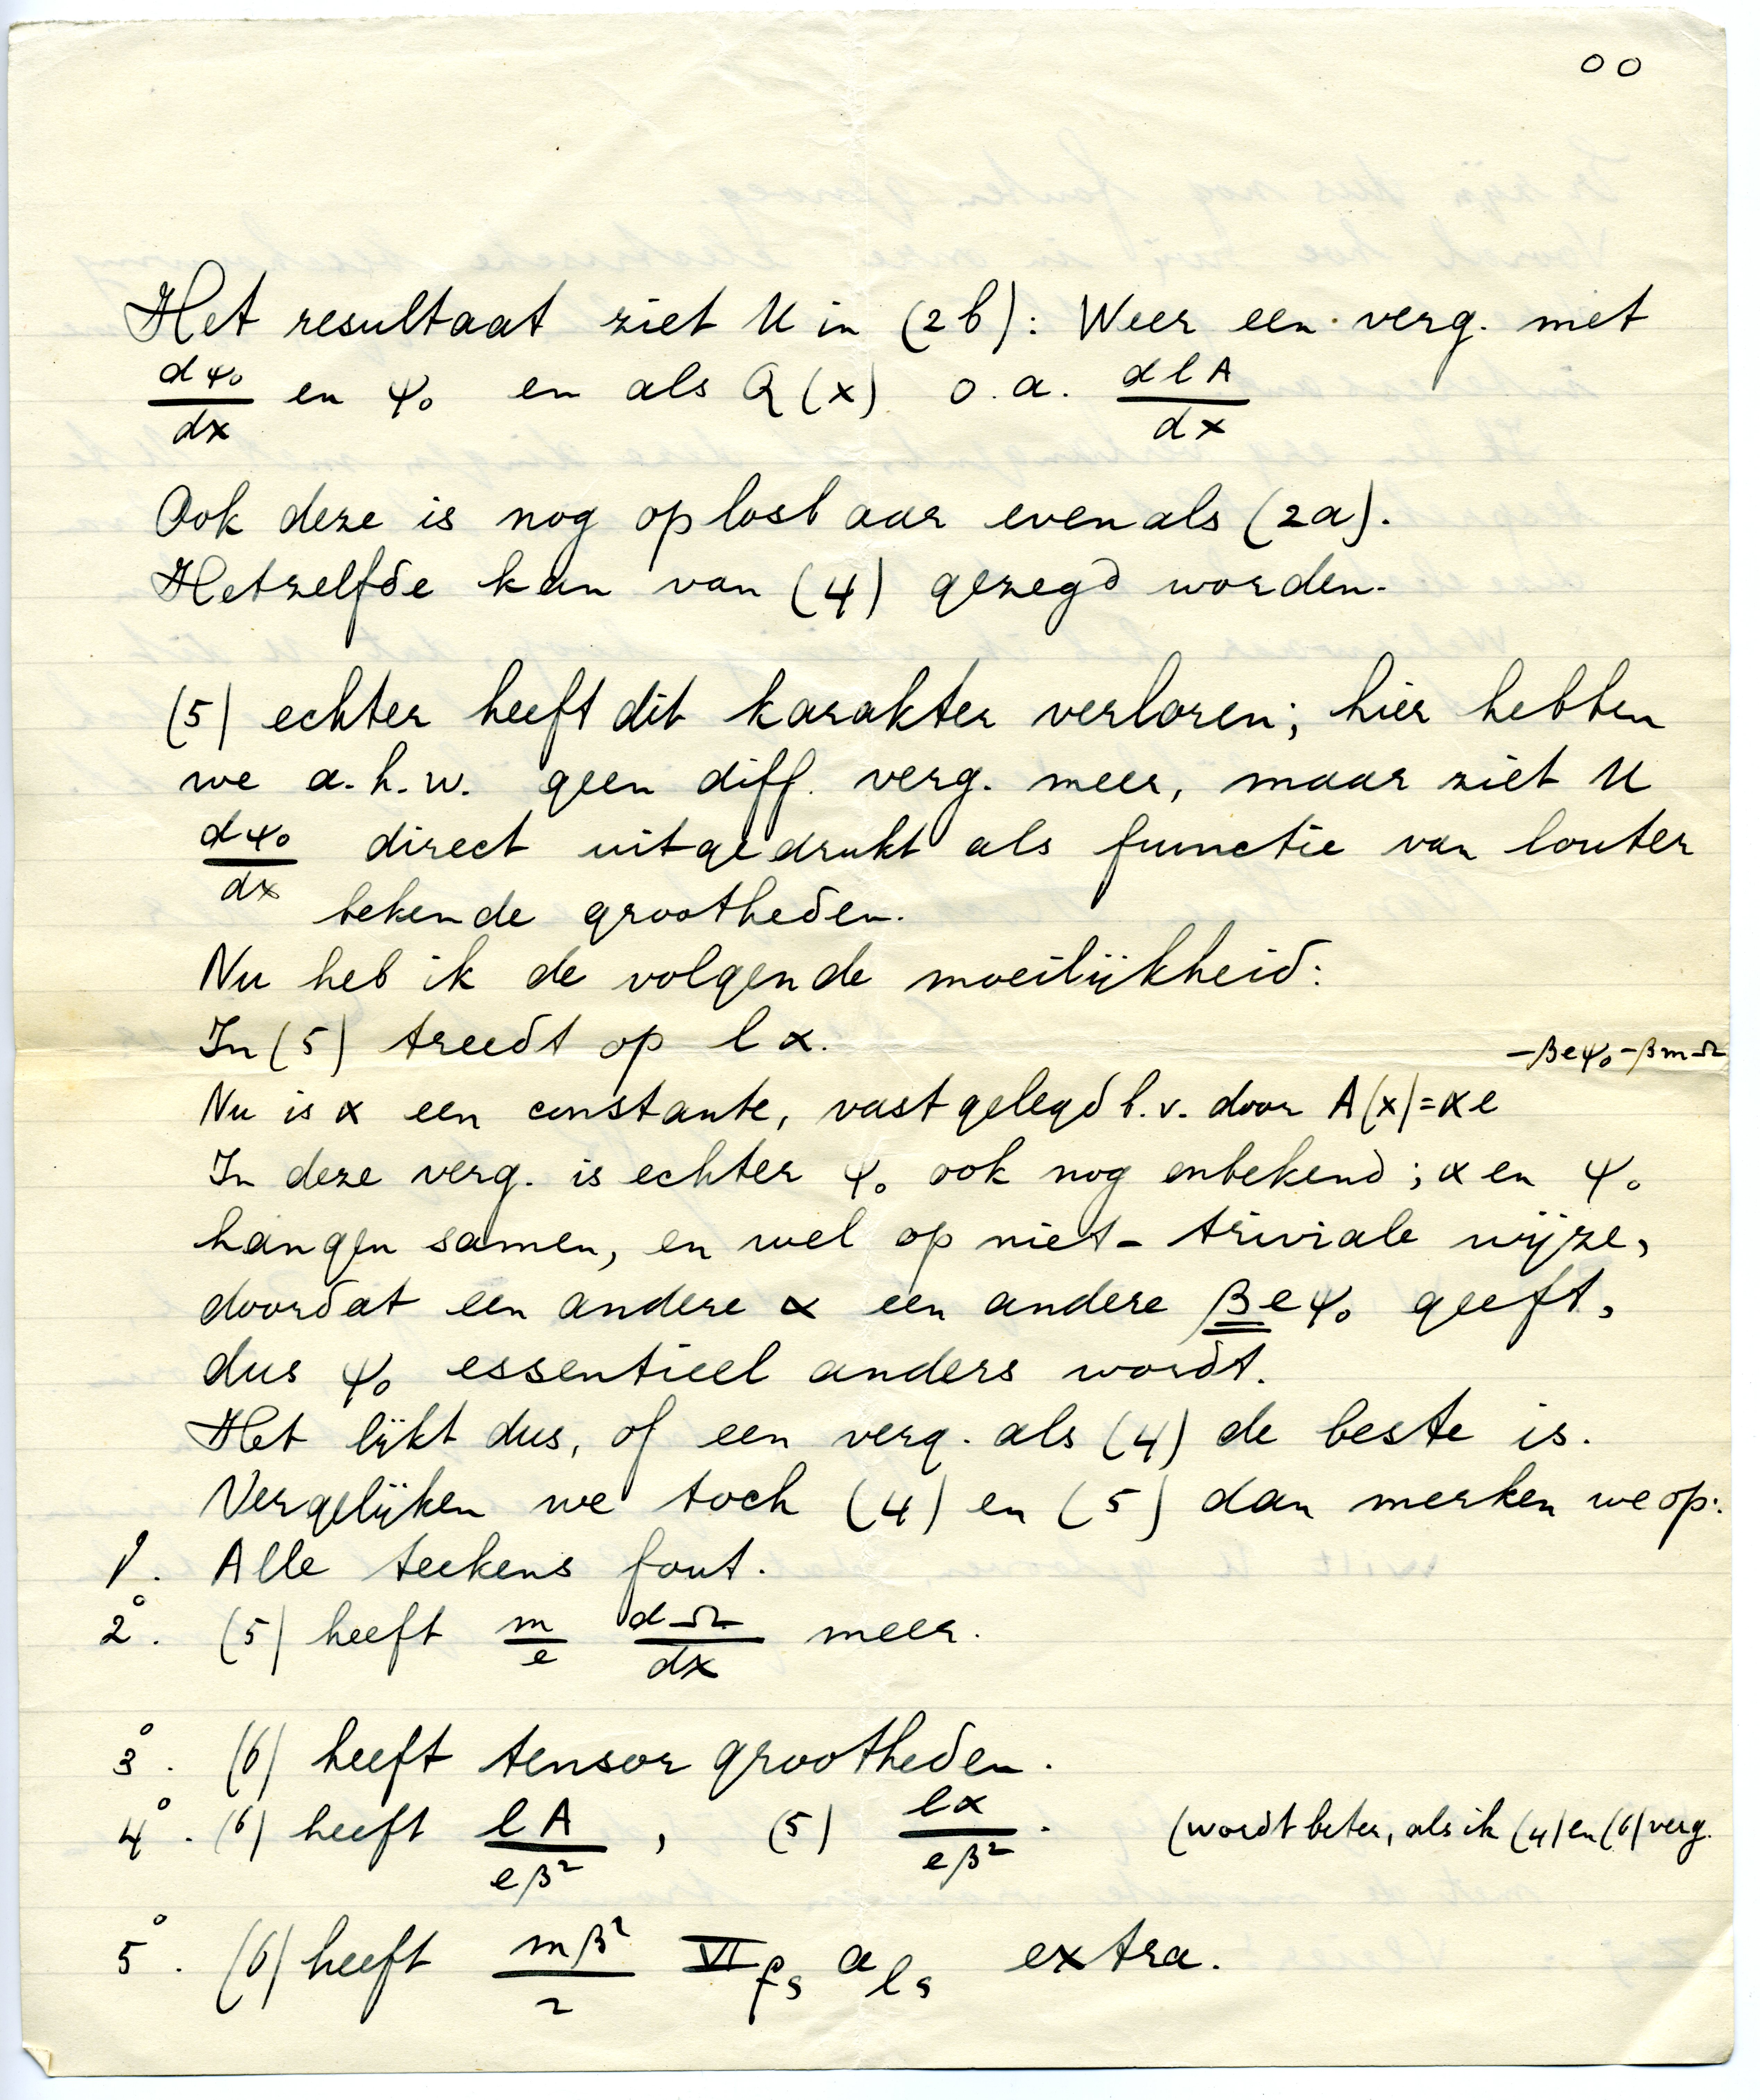 00
Het resultaat ziet U in (2b): Weer een verg. met
dψ₀/dx en ψ₀ en als Q(x) o.a. dlA/dx
Ook deze is nog oplosbaar evenals (2a).
Hetzelfde kan van (4) gezegd worden.
(5) echter heeft dit karakter verloren; hier hebben
we a.h.w. geen diff. verg. meer, maar ziet U
dψ₀/dx direct uitgedrukt als functie van louter
bekende grootheden.
Nu heb ik de volgende moeilijkheid:
In (5) treedt op lα.
Nu is α een constante, vastgelegd b.v. door A(x)=αe^(-βeψ₀-βmΩ)
In deze verg. is echter ψ₀ ook nog onbekend; α en ψ₀
hangen samen, en wel op niet-triviale wijze,
doordat een andere α een andere βeψ₀ geeft,
dus ψ₀ essentieel anders wordt.
Het lijkt dus, of een verg. als (4) de beste is.
Vergelijken we toch (4) en (5) dan merken we op:
1°. Alle teekens fout.
2°. (5) heeft m/e dΩ/dx meer.
3°. (6) heeft tensor grootheden.
4°. (6) heeft lA/eβ², (5) lα/eβ². (wordt beter, als ik (4) en (6) verg.
5°. (6) heeft mβ²/2 VI fs a ls extra.